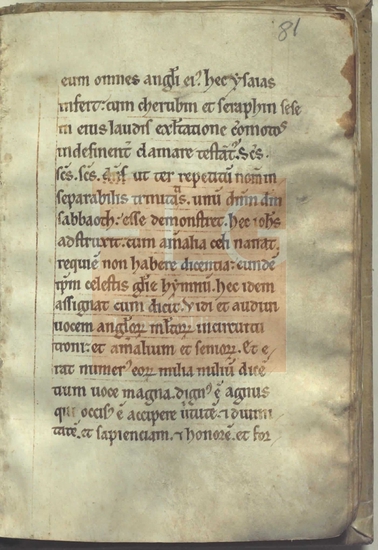 81
eum omnes angł̄i ei᷒. hec ysaias
infert: cum cherubin et seraphin sese
in eius laudis exł̄tatione cōmotos
indefinent̄ clamare testat᷑. Scs̄.
scs̄. scs̄. ut ter repetitū nomīn
separabilis trinitas. unū dnm̄ dm̄
sabbaoth: esse demonstret. hec ioh̄s
adstruxit. cum aīalia celi
requiē non habere dicentia: eundē
ip̄m celestis gł̄ie hymnū. hec idem
assignat cum dicit. Vidi et audiui
uocem angł̄oꝝ ml̄toꝝ in circuitu
troni: et aīalium et senioꝝ. Et e
rat numerꝰ eoꝝ milia miliū dicē
tium uoce magna. dignꝰ ē agnus
qui occisꝰ ē accipere ūtutē ⁊ diuini
tatē. et sapienciam. ⁊ honorē. et for